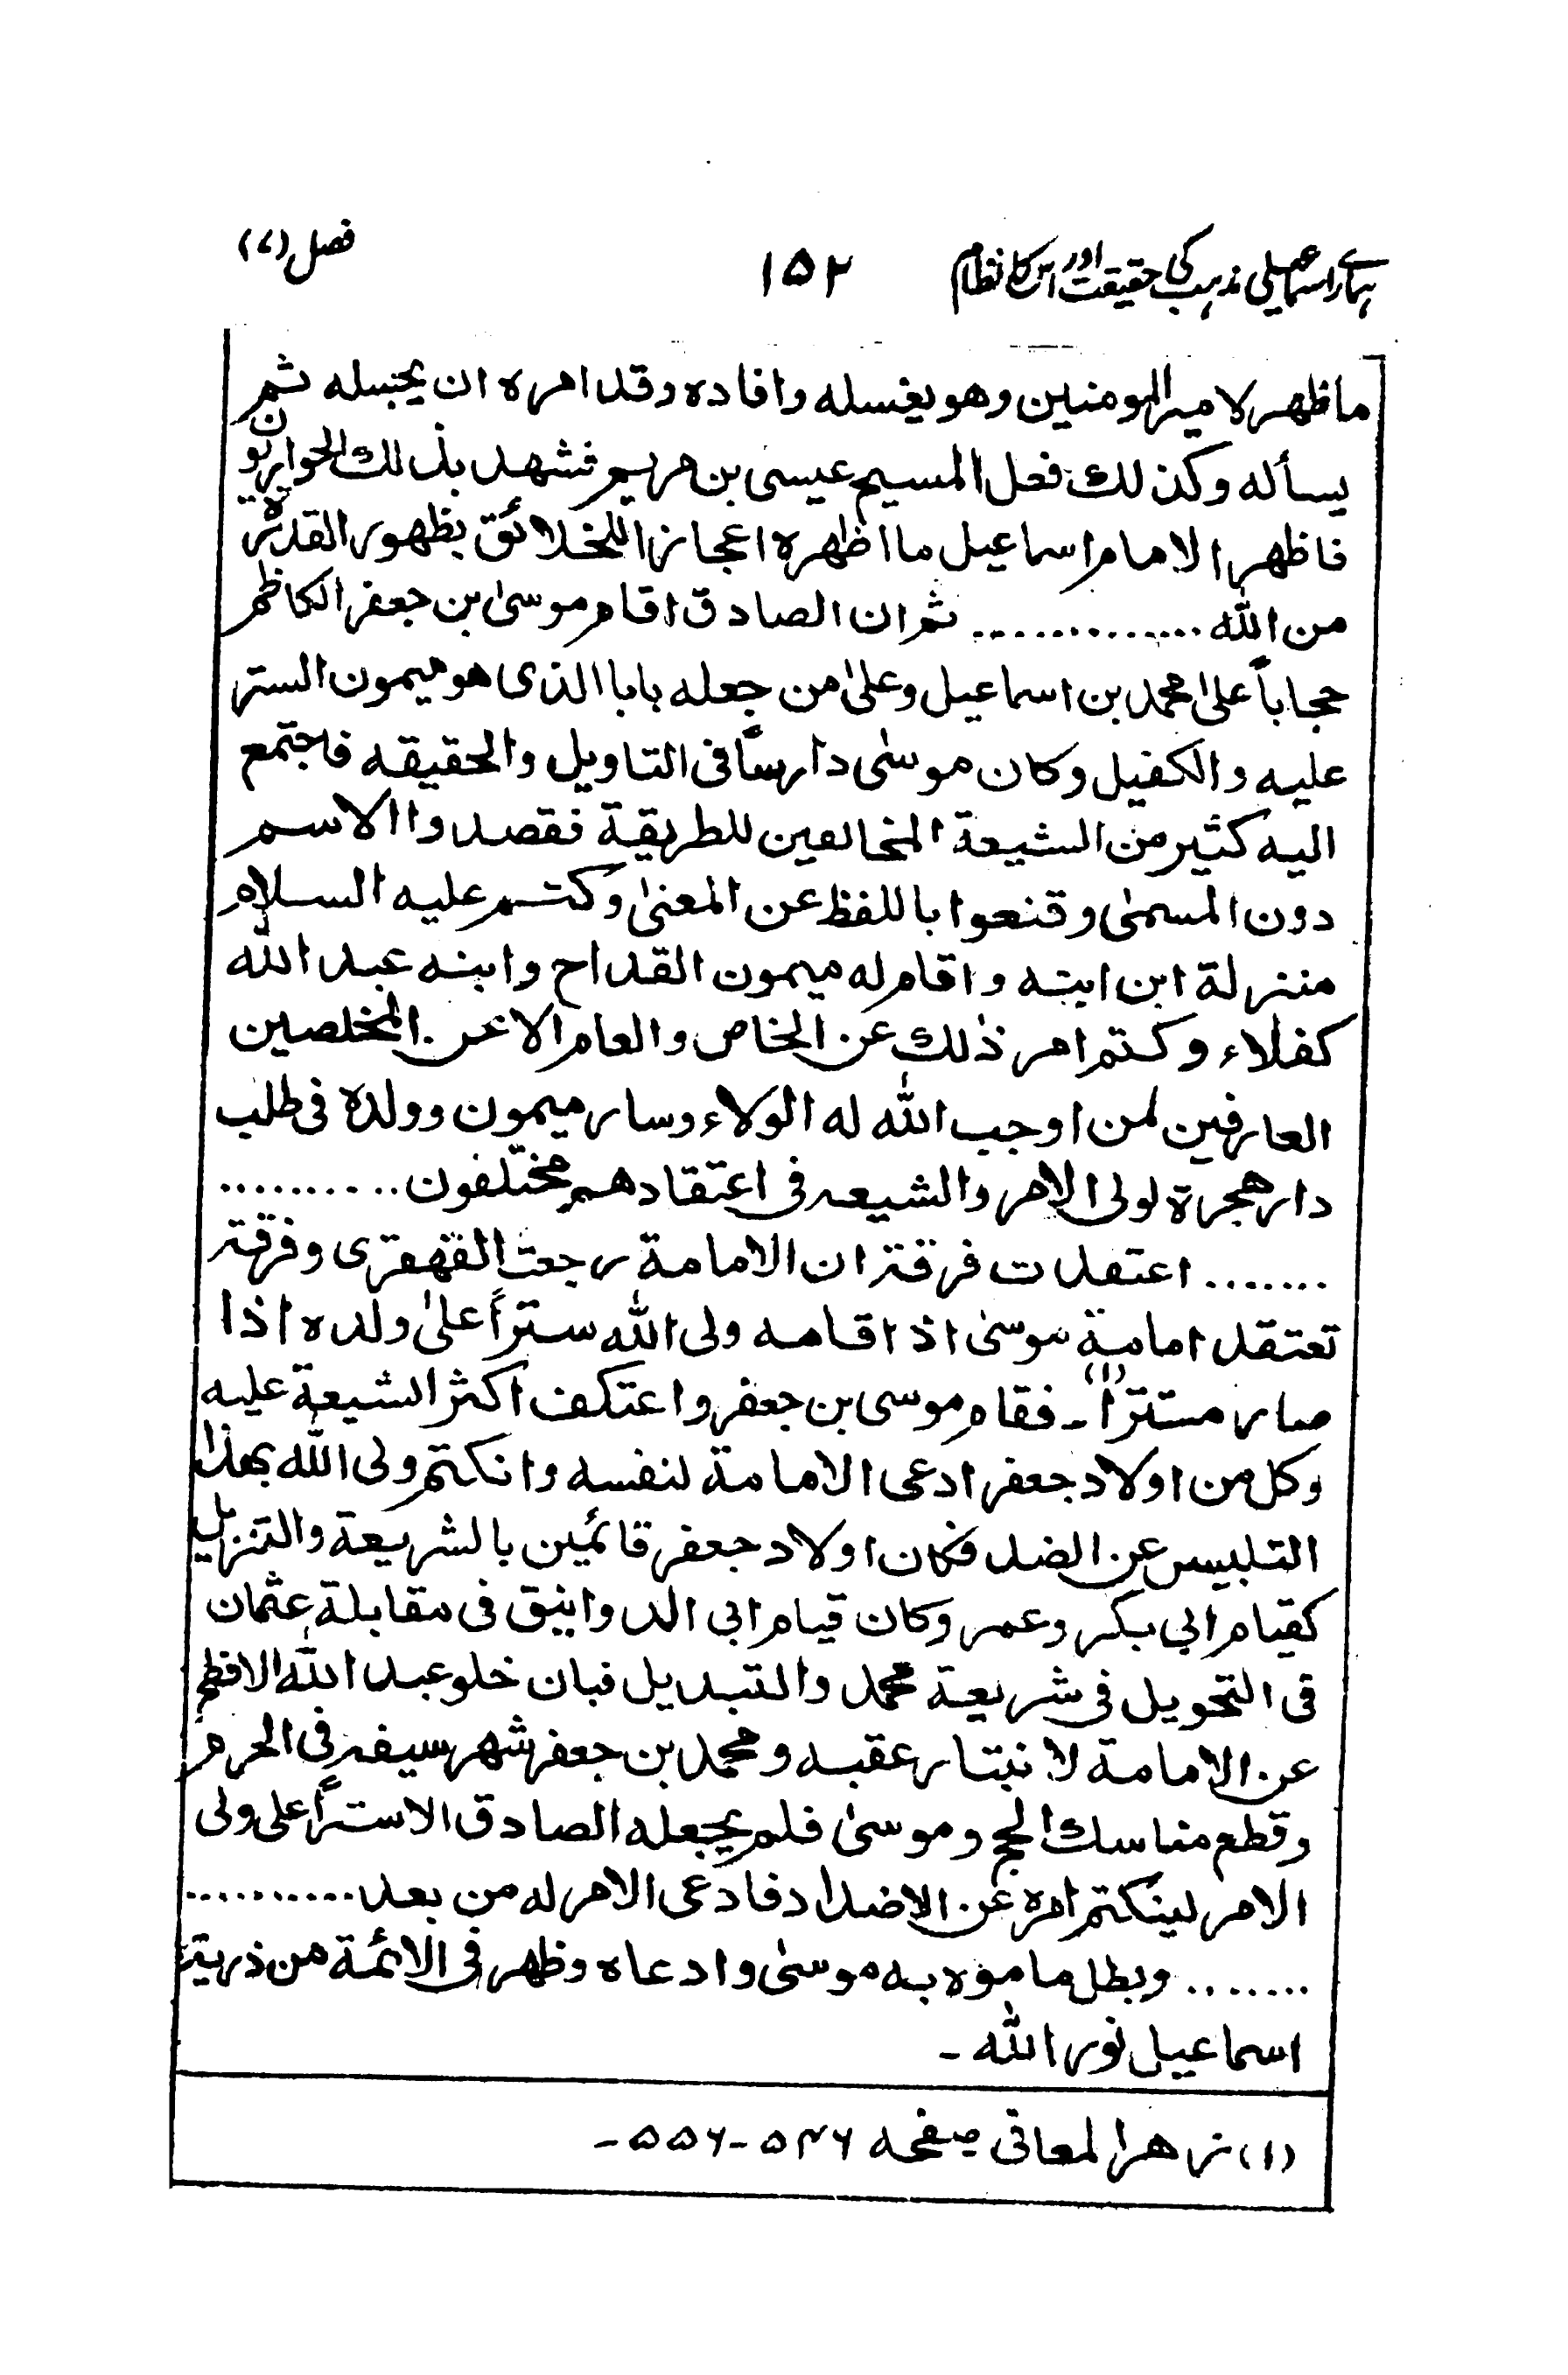 ہمارے اسماعیلی مذہب کی حقیقت اور اس کا نظام ۱۵۲ فصل (۷)
ما ظهر لامير المومنين وهو يغسله وافاده وقد امره ان يجنسله ثم
يسأله وكذلك فعل المسيح عيسى بن مريم فشهد بذلك الحواريون
فاظهر الامام اسماعيل ما اظهره اعجازا للخلائق بظهور القدرة
من الله .............. ثم ان الصادق اقام موسىٰ بن جعفر الكاظم
حجاباً علىٰ محمد بن اسماعيل وعلىٰ من جعله بابا الذى هو ميمون الستر
عليه والكفيل وكان موسىٰ دارساً فى التاويل والحقيقه فاجتمع
اليه كثير من الشيعة المخالفين للطريقة فقصدوا الاسم
دون المسمىٰ وقنعوا باللفظ عن المعنىٰ وكتم عليه السلام
منزلة ابن ابنه واقام له ميمون القداح وابنه عبد الله
كفلاء وكتم امر ذٰلك عن الخاص والعام الا عن المخلصين
العارفين لمن اوجب الله له الولاء وسار ميمون وولده فى طلب
دار هجرة لولى الامر والشيعه فى اعتقادهم مختلفون ..........
....... اعتقدت فرقة ان الامامة رجعت القهقرى وفرقة
تعتقد امامة موسىٰ اذ اقامه ولى الله ستراً علىٰ ولده اذا
صار مستتراً (۱) ـ فقام موسى بن جعفر واعتكف اكثر الشيعة عليه
وكل من اولاد جعفر ادعى الامامة لنفسه وانكتم ولى الله بهذا
التلبيس عن الضد فكان اولاد جعفر قائمين بالشريعة والتنزيل
كقيام ابي بكر وعمر وكان قيام ابى الدوانيق فى مقابلة عثمان
فى التحويل فى شريعة محمد والتبديل فبان خلو عبد الله الافطح
عن الامامة لانبتار عقبه ومحمد بن جعفر شهر سيفه فى الحرم
وقطع مناسك الحج وموسىٰ فلم يجعله الصادق الا ستراً على ولى
الامر لينكتم امره عن الاضداد فادعى الامر له من بعد ..........
....... وبطل ما موه به موسىٰ وادعاه وظهر فى الائمة من ذرية
اسماعيل نور الله ـ
(۱) زهر المعانى صفحه ۵۴۶-۵۵۶-